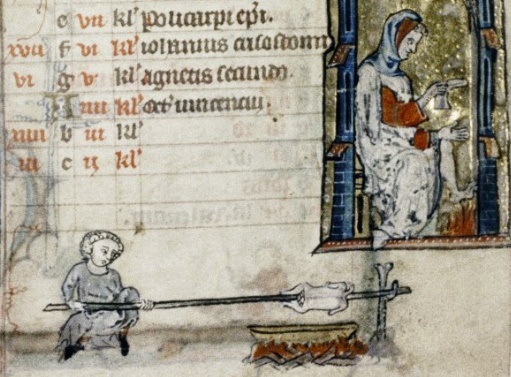 e vii kl' policarpi epi.
xvii f vi kl' iohannis crisostomi
vi g v kl' agnetis secundo.
A iiii kl' oct' uincencii.
xiiii b iii kl'
iii c ii kl'